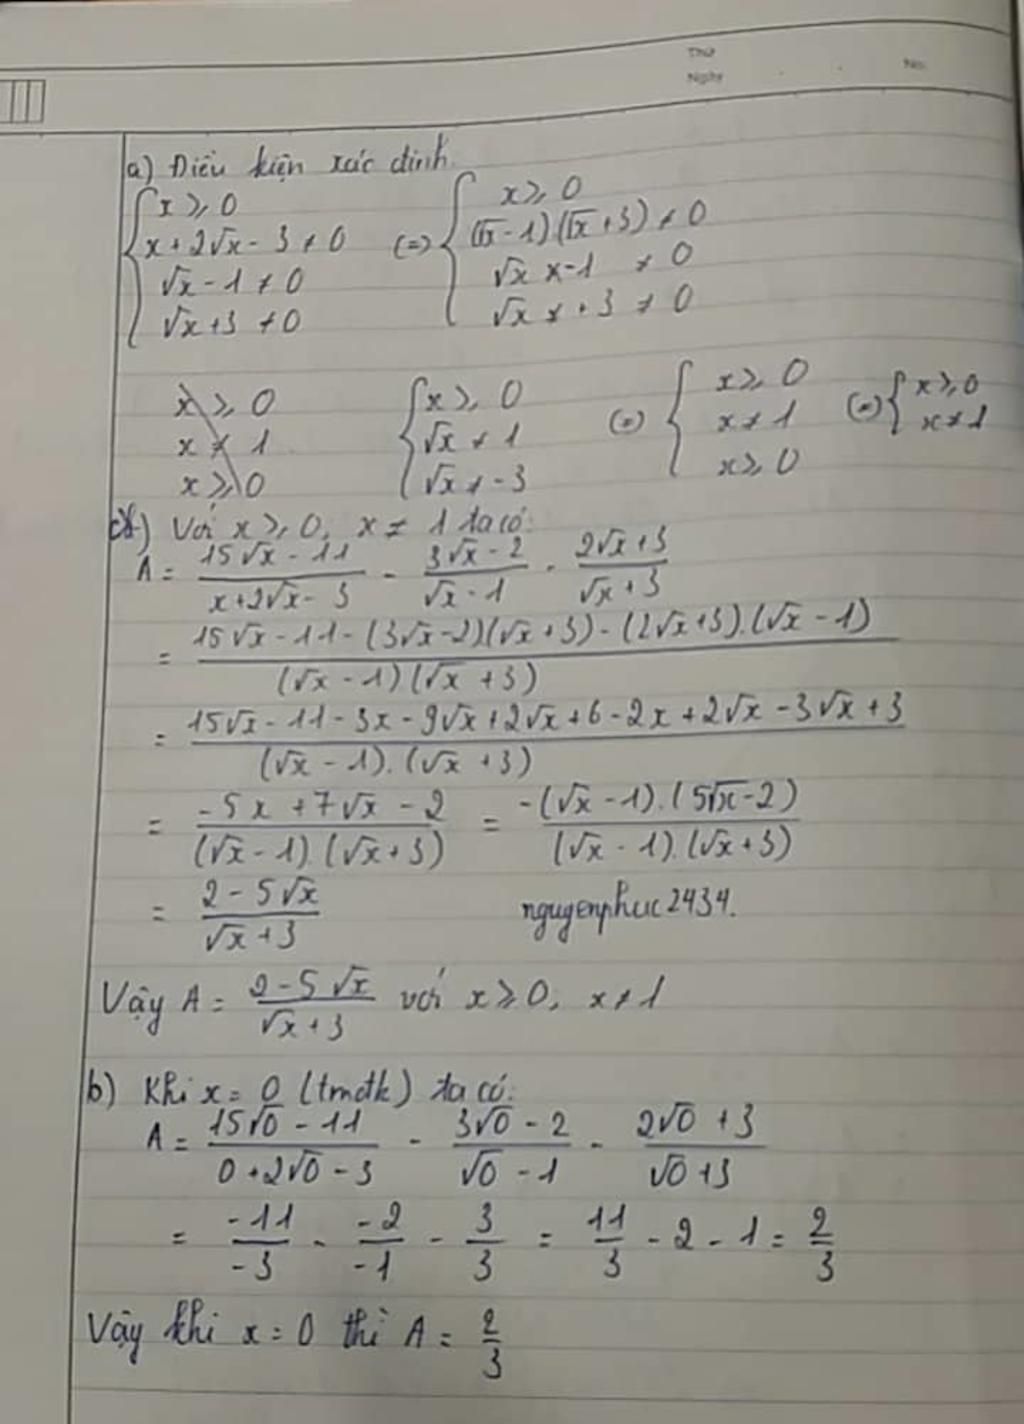 Thứ
Ngày No.
a) Điều kiện xác định.
{ x ⩾ 0
x + 2√x - 3 ≠ 0
√x - 1 ≠ 0
√x + 3 ≠ 0
(=) { x ⩾ 0
(√x - 1)(√x + 3) ≠ 0
√x x - 1 ≠ 0
√x ≠ + 3 ≠ 0
x ⩾ 0
x ≠ 1
x ⩾ 0
{ x ⩾ 0
√x ≠ 1
√x ≠ -3
(=) { x ⩾ 0
x ≠ 1
x ⩾ 0
(=) { x ⩾ 0
x ≠ 1
c) Với x ⩾ 0, x ≠ 1 ta có:
A = (15√x - 11)/(x + 2√x - 3) - (3√x - 2)/(√x - 1) - (2√x + 3)/(√x + 3)
= (15√x - 11 - (3√x - 2)(√x + 3) - (2√x + 3).(√x - 1))/((√x - 1)(√x + 3))
= (15√x - 11 - 3x - 9√x + 2√x + 6 - 2x + 2√x - 3√x + 3)/((√x - 1).(√x + 3))
= (-5x + 7√x - 2)/((√x - 1).(√x + 3)) = (-(√x - 1).(5√x - 2))/((√x - 1).(√x + 3))
= (2 - 5√x)/(√x + 3) nguyenphuc2434.
Vậy A = (2 - 5√x)/(√x + 3) với x ⩾ 0, x ≠ 1
b) Khi x = 0 (tmđk) ta có:
A = (15√0 - 11)/(0 + 2√0 - 3) - (3√0 - 2)/(√0 - 1) - (2√0 + 3)/(√0 + 3)
= (-11)/(-3) - (-2)/(-1) - 3/3 = 11/3 - 2 - 1 = 2/3
Vậy khi x = 0 thì A = 2/3